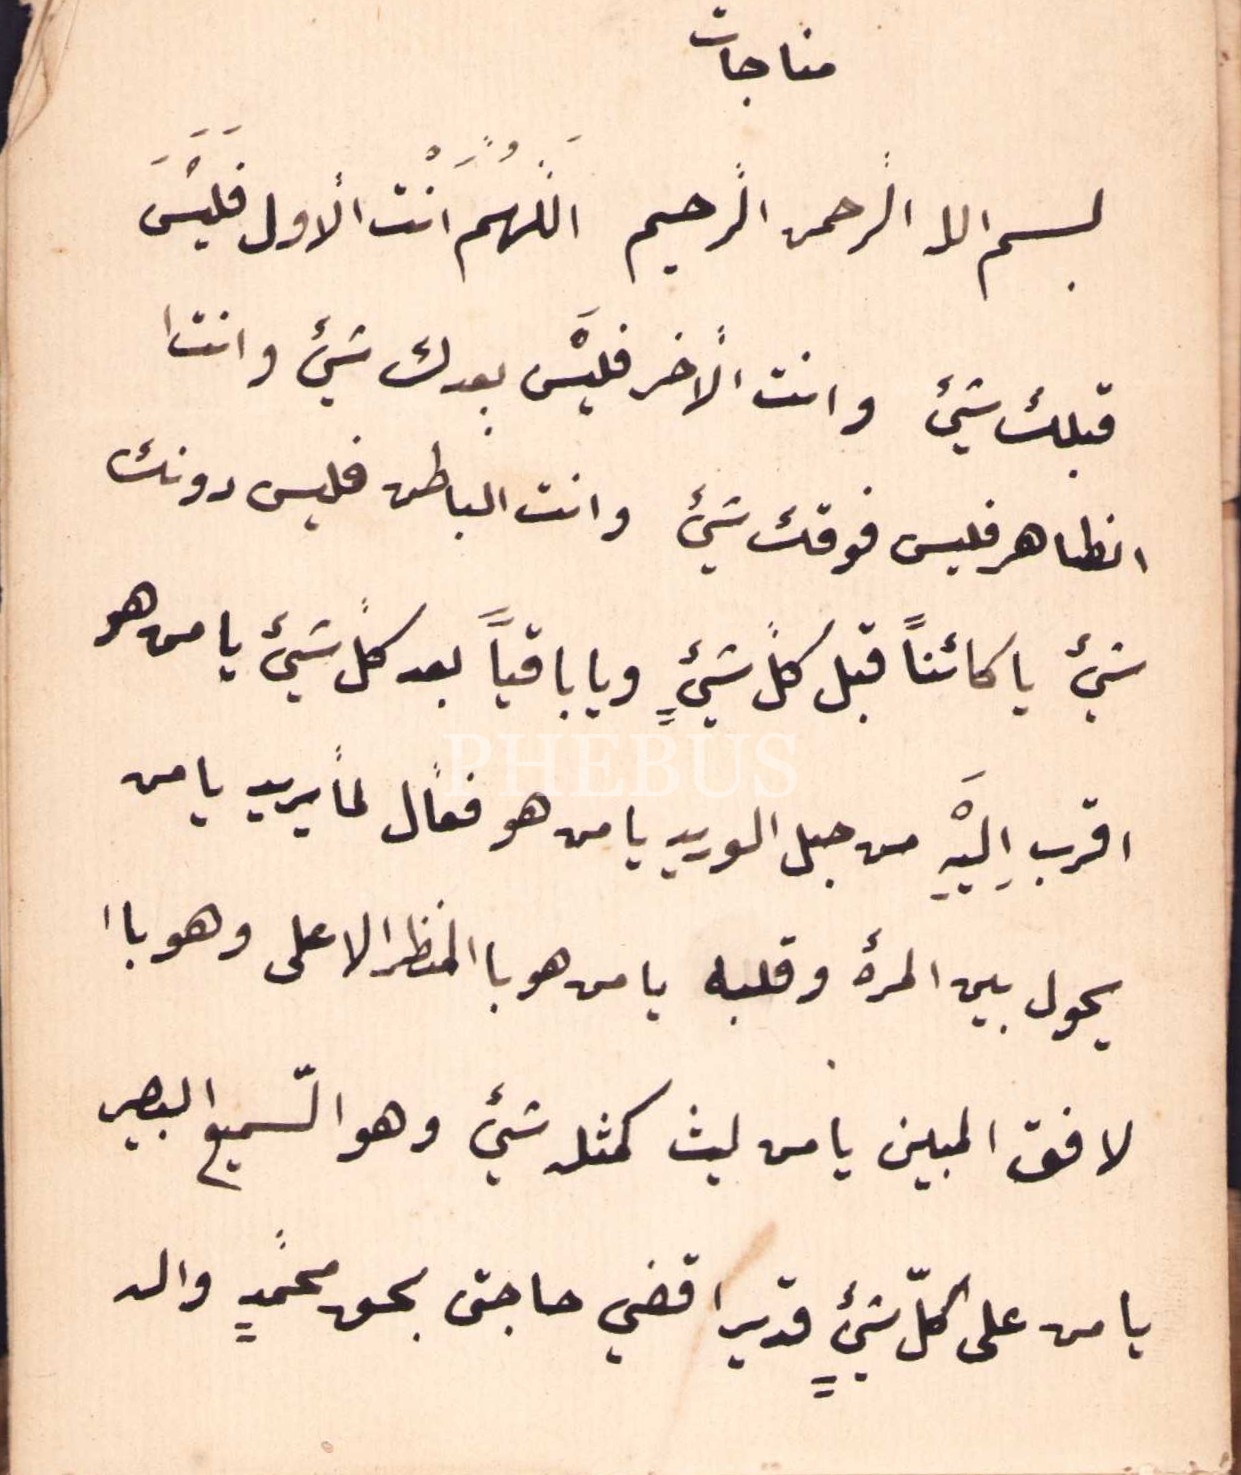 مناجات
بسم الله الرحمن الرحيم اللّهُمَّ اَنْتَ الاول فَلَيْسَ
قبلك شئ وانت الآخر فليْسَ بعدك شئ وانت ا
لظاهر فليس فوقك شئ وانت الباطن فليس دونك
شئ يا كائناً قبل كلّ شئٍ ويا باقياً بعد كلّ شئ يا من هو
اقرب اِلَيْهِ من حبل الوريد يا من هو فعّال لما يريد يا من
يحول بين المرء وقلبه يا من هو باالمنظر الاعلى وهو باا
لافق المبين يا من ليث كمثله شئ وهو السّميع البصير
يا من على كلّ شئٍ قدير اقضي حاجتى بحق محمّدٍ واله
PHEBUS